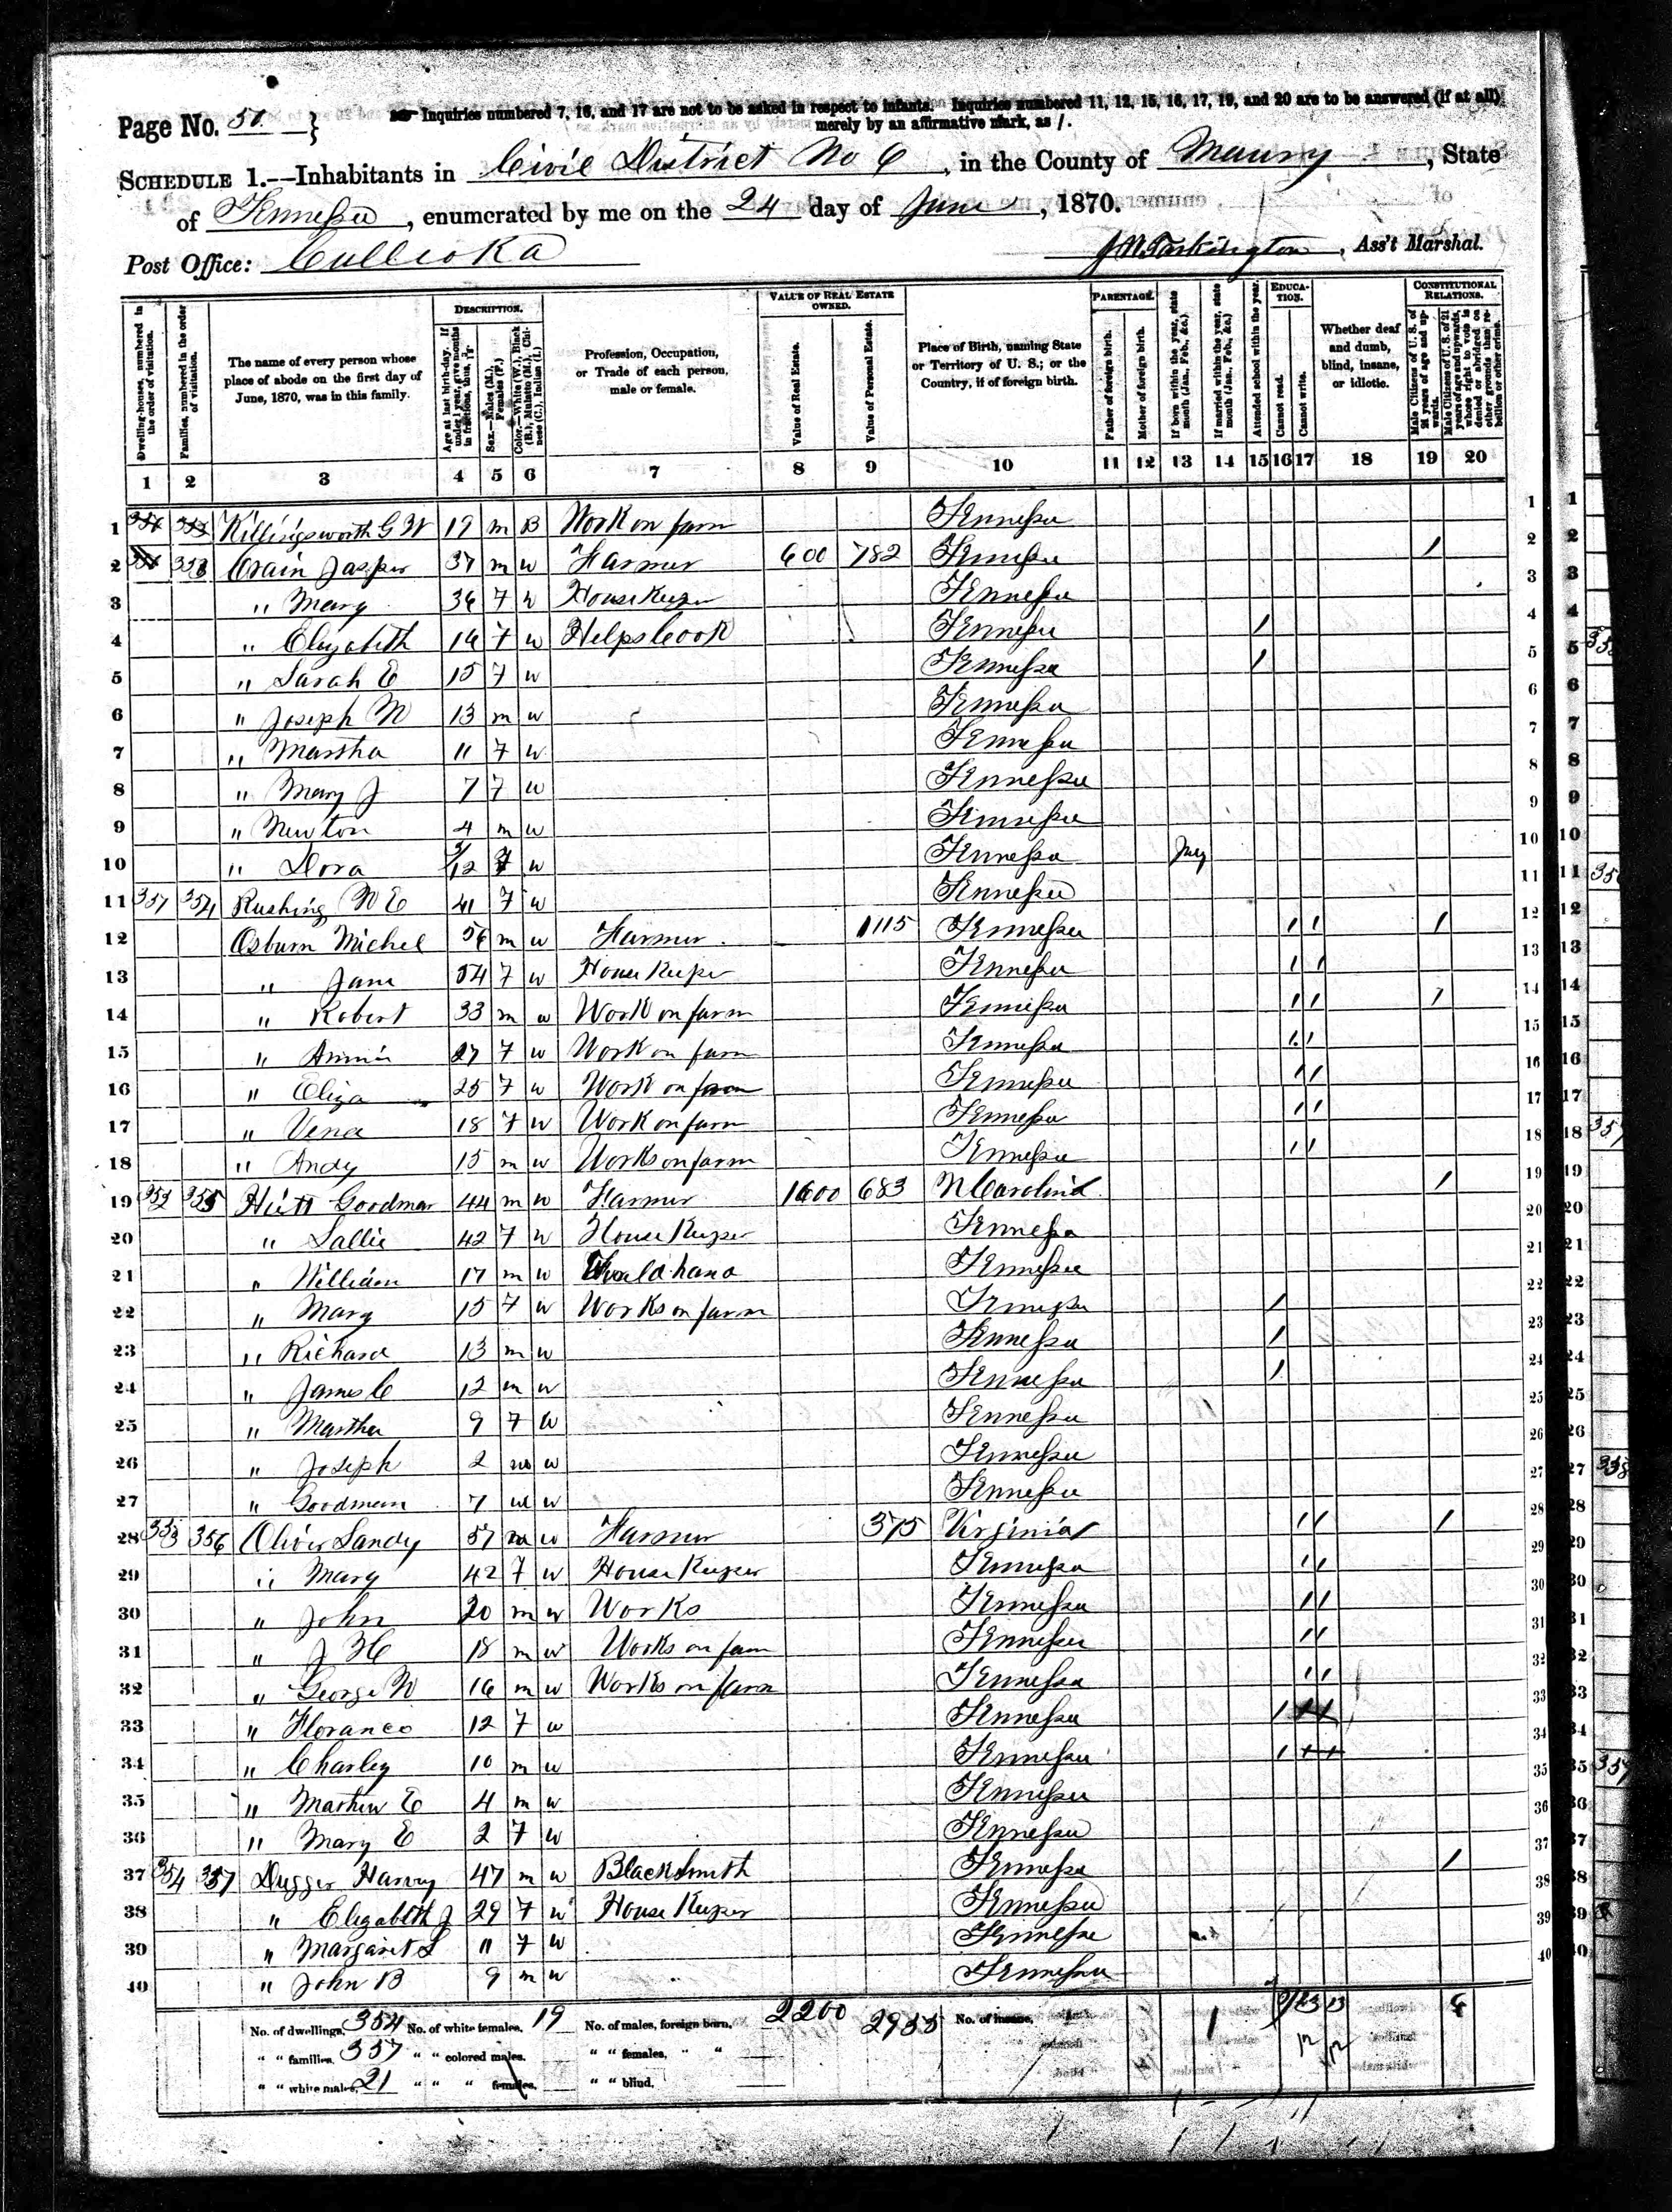 Page No. 51 }
Inquiries numbered 7, 16, and 17 are not to be asked in respect to infants. Inquiries numbered 11, 12, 15, 16, 17, 19, and 20 are to be answered (if at all)
merely by an affirmative mark, as /.
SCHEDULE 1.--Inhabitants in Civil District No 6, in the County of Maury, State
of Tennessee, enumerated by me on the 24 day of June, 1870.
Post Office: Cullioka
J N Tarkington, Ass't Marshal.
Dwelling-houses, numbered in the order of visitation.
Families, numbered in the order of visitation.
The name of every person whose place of abode on the first day of June, 1870, was in this family.
DESCRIPTION.
Age at last birth-day. If under 1 year, give months in fractions, thus, 3/12.
Sex.—Males (M.), Females (F.)
Color.—White (W.), Black (B.), Mulatto (M.), Chinese (C.), Indian (I.)
Profession, Occupation, or Trade of each person, male or female.
VALUE OF REAL ESTATE OWNED.
Value of Real Estate.
Value of Personal Estate.
Place of Birth, naming State or Territory of U. S.; or the Country, if of foreign birth.
PARENTAGE.
Father of foreign birth.
Mother of foreign birth.
If born within the year, state month (Jan., Feb., &c.)
If married within the year, state month (Jan., Feb., &c.)
Attended school within the year.
EDUCATION.
Cannot read.
Cannot write.
Whether deaf and dumb, blind, insane, or idiotic.
CONSTITUTIONAL RELATIONS.
Male Citizens of U. S. of 21 years of age and upwards.
Male Citizens of U. S. of 21 years of age and upwards, whose right to vote is denied or abridged on other grounds than rebellion or other crime.
1 2 3 4 5 6 7 8 9 10 11 12 13 14 15 16 17 18 19 20
1 Killingsworth G W 19 m B Work on farm Tennessee 1
2 353 Crain Jasper 37 m w Farmer 600 782 Tennessee / 2
3 " Mary 36 7 w House Keeper Tennessee 3
4 " Elizabeth 16 7 w Helps Cook Tennessee / 4
5 " Sarah E 15 7 w Tennessee / 5
6 " Joseph W 13 m w Tennessee 6
7 " Martha 11 7 w Tennessee 7
8 " Mary J 7 7 w Tennessee 8
9 " Newton 4 m w Tennessee 9
10 " Dora /12 7 w Tennessee 10
11 351 354 Rushing W E 41 7 w Tennessee 11
12 Osburn Michel 56 m w Farmer 1115 Tennessee / / / 12
13 " Jane 54 7 w House Keeper Tennessee / / 13
14 " Robert 33 m w Work on farm Tennessee / / / 14
15 " 27 7 w Work on farm Tennessee / / 15
16 " Eliza 25 7 w Work on farm Tennessee / / 16
17 " Vena 18 7 w Work on farm Tennessee / / 17
18 " Andy 15 m w Works on farm Tennessee / / 18
19 352 355 Hiett Goodman 44 m w Farmer 1600 683 N Carolina / 19
20 " Sallie 42 7 w House Keeper Tennessee 20
21 " William 17 m w Tennessee 21
22 " Mary 15 7 w Works on farm Tennessee / 22
23 " Richard 13 m w Tennessee / 23
24 " James C 12 m w Tennessee / 24
25 " Martha 9 7 w Tennessee 25
26 " Joseph 2 m w Tennessee 26
27 " Goodman 7 m w Tennessee 27
28 353 356 Oliver Sandy 57 m w Farmer 375 Virginia / / / 28
29 " Mary 42 7 w House Keeper Tennessee / / 29
30 " John 20 m w Works Tennessee / / 30
31 " J H 18 m w Works on farm Tennessee / / 31
32 " George W 16 m w Works on farm Tennessee / / 32
33 " Floranco 12 7 w Tennessee / 33
34 " Charley 10 m w Tennessee / 34
35 " Mathew E 4 m w Tennessee 35
36 " Mary E 2 7 w Tennessee 36
37 354 357 Dugger Harvey 47 m w Blacksmith Tennessee / 37
38 " Elizabeth J 29 7 w House Keeper Tennessee 38
39 " Margaret L 11 7 w Tennessee 39
40 " John B 9 m w Tennessee 40
No. of dwellings, 354 No. of white females, 19 No. of males, foreign born, 2200 2955 No. of insane,
" " families, 357 " " colored males, " " females, " "
" " white males, 21 " " " females, " " blind,